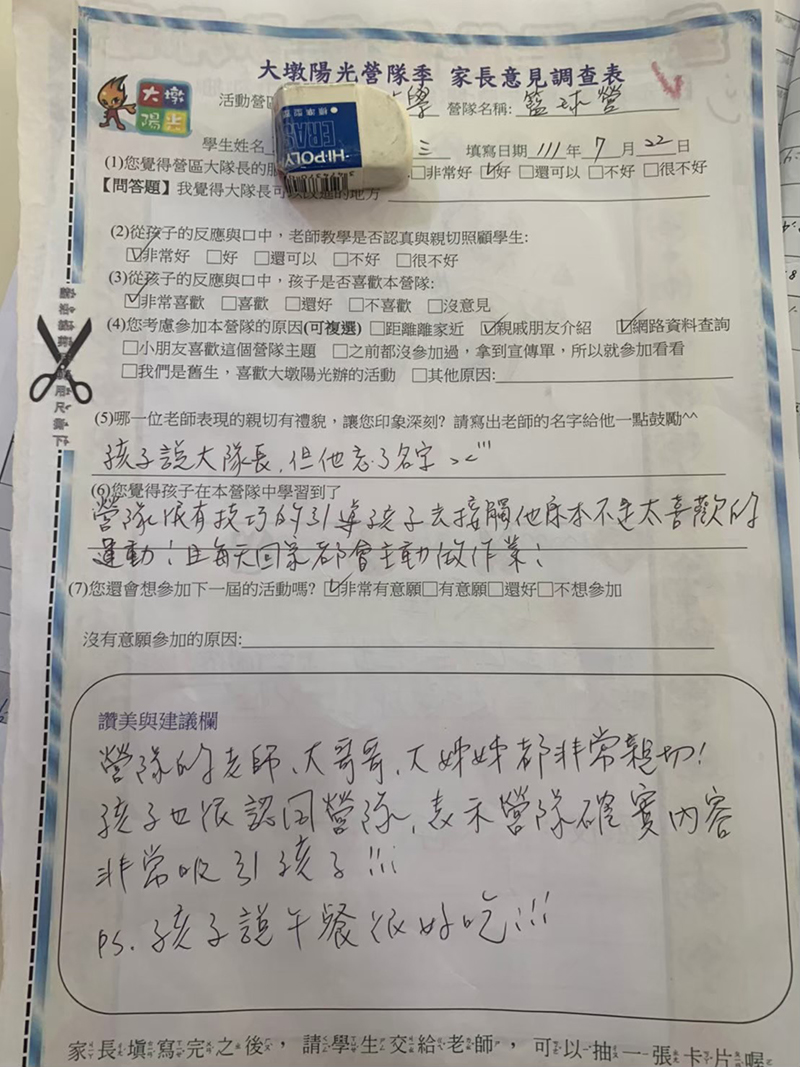 大墩陽光營隊季 家長意見調查表
大墩
陽光
活動營區 學 營隊名稱: 籃球營
學生姓名 三 填寫日期 111 年 7 月 22 日
HI-POLY
ERAS
標準型
(1)您覺得營區大隊長的服 □非常好 ☑好 □還可以 □不好 □很不好
【問答題】我覺得大隊長可以改進的地方
(2)從孩子的反應與口中，老師教學是否認真與親切照顧學生:
☑非常好 □好 □還可以 □不好 □很不好
(3)從孩子的反應與口中，孩子是否喜歡本營隊:
☑非常喜歡 □喜歡 □還好 □不喜歡 □沒意見
(4)您考慮參加本營隊的原因(可複選) □距離離家近 ☑親戚朋友介紹 ☑網路資料查詢
□小朋友喜歡這個營隊主題 □之前都沒參加過，拿到宣傳單，所以就參加看看
□我們是舊生，喜歡大墩陽光辦的活動 □其他原因:
(5)哪一位老師表現的親切有禮貌，讓您印象深刻? 請寫出老師的名字給他一點鼓勵^^
孩子說大隊長，但他忘了名字 ><"
(6)您覺得孩子在本營隊中學習到了
營隊很有技巧的引導孩子去接觸他原本不是太喜歡的
運動！且每天回家都會主動做作業！
(7)您還會想參加下一屆的活動嗎? ☑非常有意願□有意願□還好□不想參加
沒有意願參加的原因:
讚美與建議欄
營隊的老師、大哥哥、大姊姊都非常親切！
孩子也很認同營隊，表示營隊確實內容
非常吸引孩子!!!
ps. 孩子說午餐很好吃!!!
家長填寫完之後，請學生交給老師，可以抽一張卡片喔